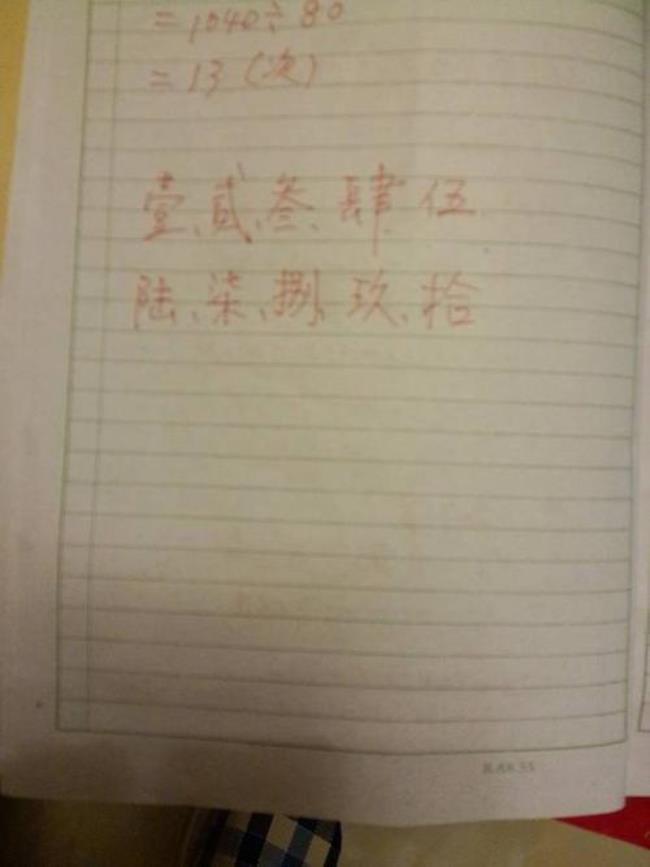 =1040÷80
=13(次)
壹、贰、叁、肆、伍
陆、柒、捌、玖、拾